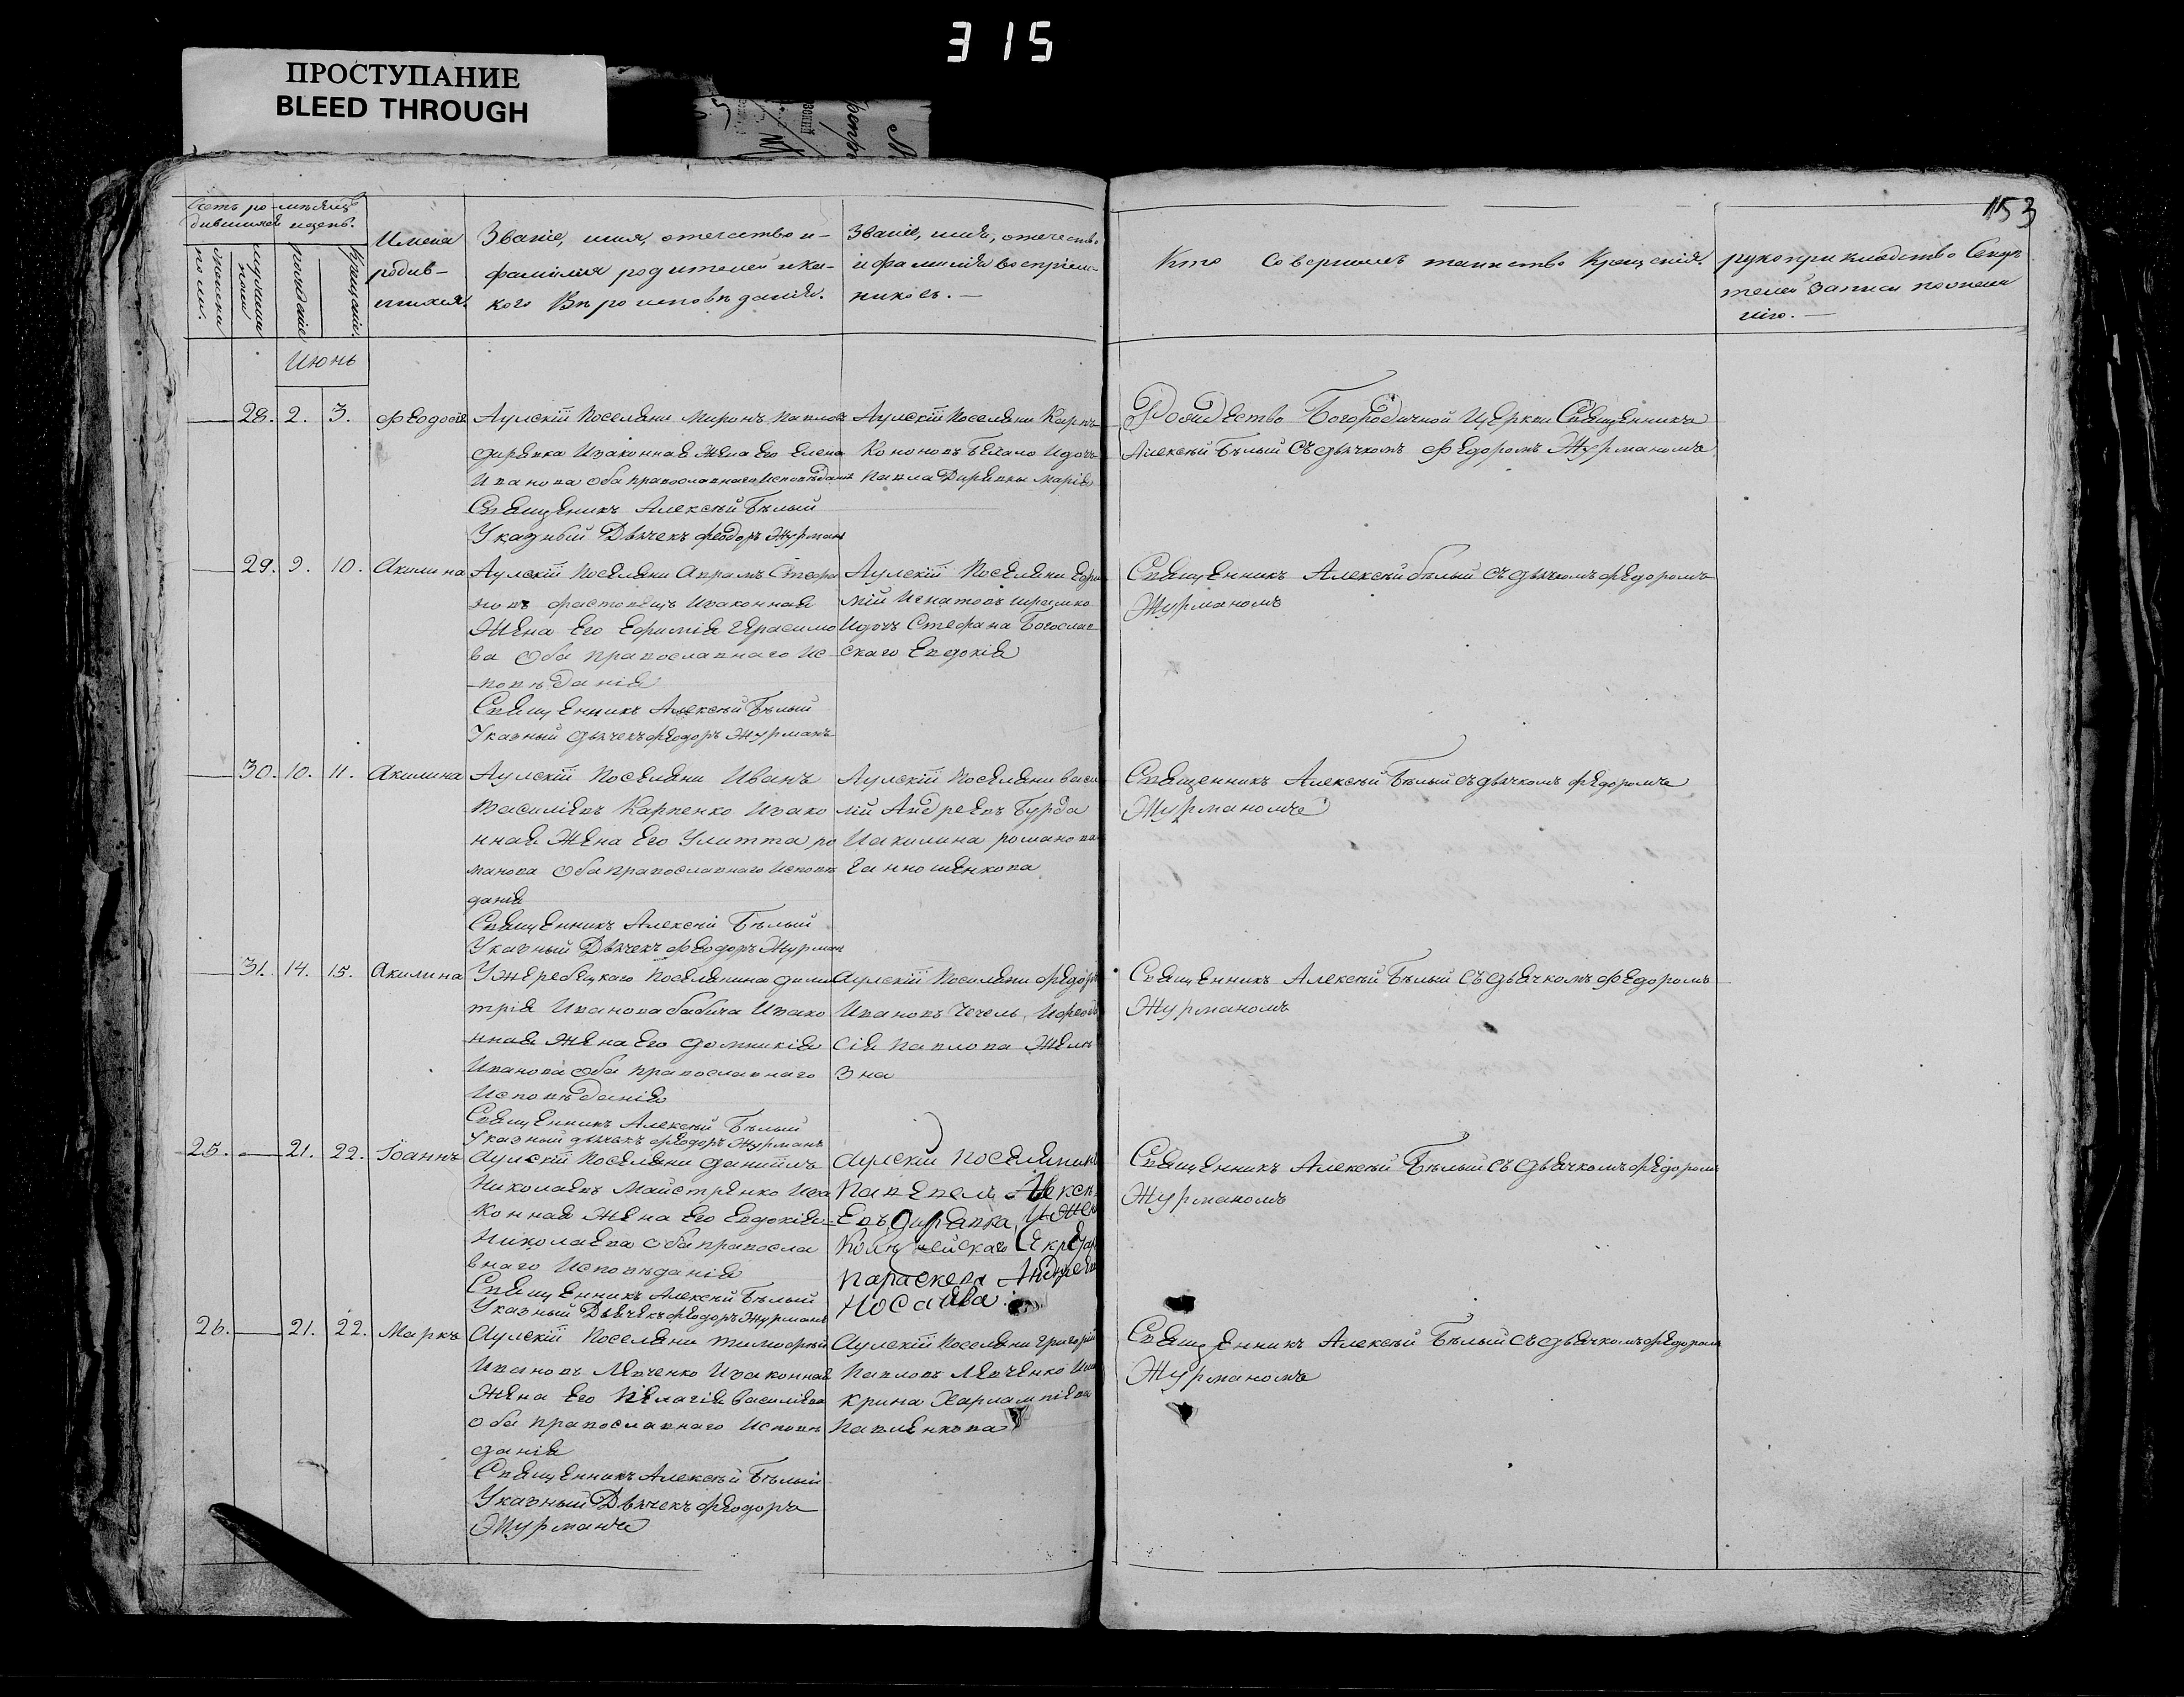 315
ПРОСТУПАНИЕ
BLEED THROUGH
153
Счетъ ро- мѣсяцъ
дившихся и день.
женска
полу.
мужеска
полу
рожденіе
крещеніе.
Имена
родив-
шихся.
Званіе, имя, отечество и
фамилія родителей и ка-
кого Вѣроисповѣданія.
Званіе, имя, отечество
и фамилія воспріем-
никовъ. —
Кто Совершалъ таинство Крещенія.
рукоприкладство Свидѣ
телей записи по
Июнь
28. 2. 3. Феодосія
Аулскій Поселяни Миронъ Павловъ
дирявка Изаконная Жена Его Елена
Иванова Оба православнаго Исповѣданія
Священикъ Алексѣй Бѣлый
Указный Дьячекъ Феодоръ Журманъ
Аулскій Поселяни Карпъ
Кононовъ Бѣлало Идочь
Павла Дирявки Марія
Рождество Богородичной Церкви Священникъ
Алексѣй Бѣлый Съ дьячкомъ Федоромъ Журманомъ
29. 9. 10. Акилина
Аулскій Поселяни Аврамъ Стефа
новъ фастовецъ Изаконная
Жена Его Ефимія Герасимо
ва Оба православнаго Ис
повѣданія
Священникъ Алексѣй Бѣлый
Указный дьячекъ Феодоръ Журманъ
Аулскій Поселяни Ефи
мій Игнатовъ
Идочь Стефана Богослав
скаго Евдокія
Священникъ Алексѣй бѣлый съ дьячкомъ Федоромъ
Журманомъ
30. 10. 11. Акилина
Аулскій Поселяни Иванъ
Василіевъ Карпенко Изако
нная Жена Его Улитта ро
манова Оба православнаго Исповѣ
данія
Священникъ Алексѣй Бѣлый
Указный Дьячекъ Феодоръ Журманъ
Аулскій Поселяни васи
лій Андреевъ Бурда
Иакилина романова
Ганношенкова
Священникъ Алексѣй Бѣлый съ дьячкомъ Федоромъ
Журманомъ
31. 14. 15. Акилина
Ужеребецкаго Поселянина дими
трія Иванова бабича Изако
нная Жена Его домникія
Иванова Оба православнаго
Исповѣданія
Священникъ Алексѣй Бѣлый
Указный дьячекъ Феодоръ Журманъ
Аулскій Поселяни Федоръ
Ивановъ Чечель, Ифеодо
сія Павлова Желѣ
зна
Священникъ Алексѣй Бѣлый Съ дьячкомъ Федоромъ
Журманомъ
25. 21. 22. Іоаннъ
Аулскій Поселяни даніилъ
Николаевъ Майстренко Иза
конная Жена Его Евдокія
Николаева оба правосла
внаго Исповѣданія
Священникъ Алексѣй Бѣлый
Указный Дьячекъ Феодоръ Журманъ
Аулскій Поселянинъ
Алексѣ
Евъ дирявка, Ижен
Секретар
параскева Андреева
Носачева.
Священникъ Алексѣй Бѣлый Съ дьячкомъ Федоромъ
Журманомъ
26. 21. 22. Маркъ
Аулскій Поселяни тимофѣй
Ивановъ Левченко Изаконная
Жена Его Пелагія василіева
Оба православнаго Исповѣ
данія
Священникъ Алексѣй Бѣлый
Указный Дьячекъ Феодоръ
Журманъ
Аулскій Поселяни григорій
Павловъ Левченко Има
крина Харлампіева
Павленкова
Священникъ Алексѣй Бѣлый Съ дьячкомъ Федоромъ
Журманомъ